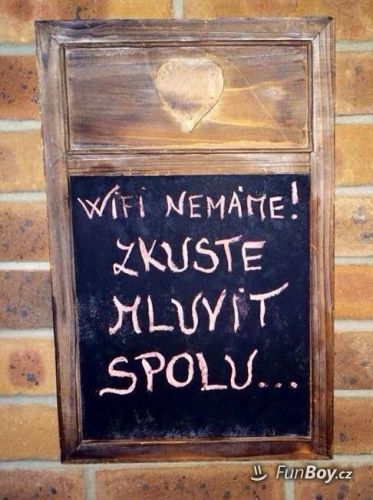 WIFI NEMÁME!
ZKUSTE
MLUVIT
SPOLU...
FunBoy.cz